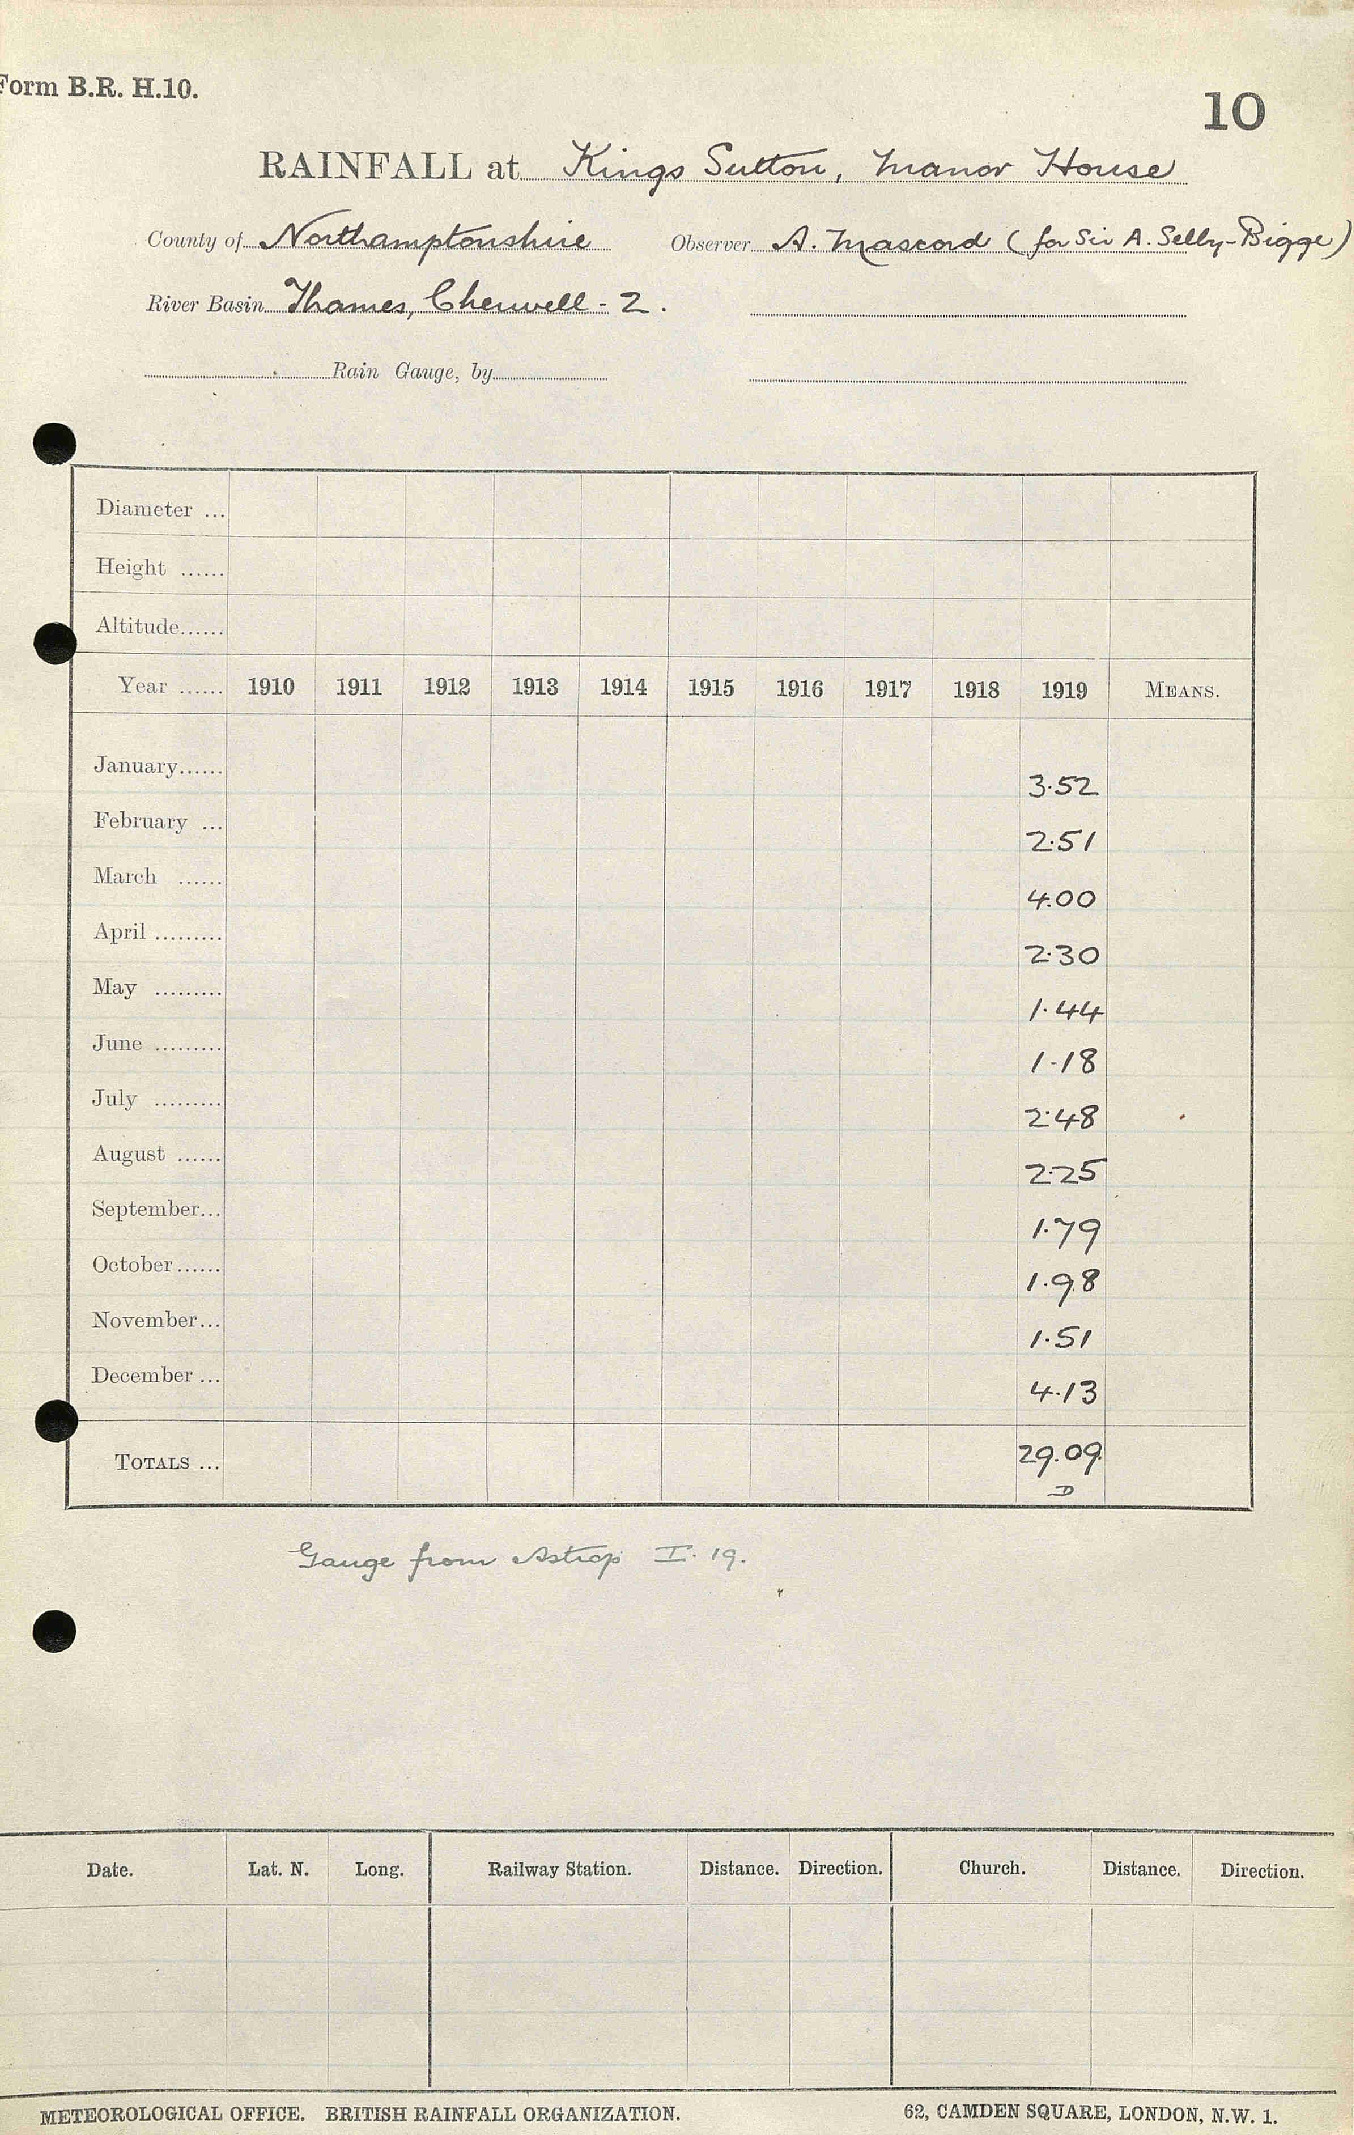 Form B.R. H.10.
10
RAINFALL at Kings Sutton, Manor House
County of Northamptonshire Observer A. Mascord (for Sir A. Selby-Bigge)
River Basin Thames, Cherwell - 2.
Rain Gauge, by
Diameter ...
Height ......
Altitude......
Year ...... 1910 1911 1912 1913 1914 1915 1916 1917 1918 1919 MEANS.
January...... 3.52
February ... 2.51
March ...... 4.00
April ......... 2.30
May ......... 1.44
June ......... 1.18
July ......... 2.48
August ...... 2.25
September... 1.79
October...... 1.98
November... 1.51
December ... 4.13
TOTALS ... 29.09
D
Gauge from Astrop I. 19.
Date. Lat. N. Long. Railway Station. Distance. Direction. Church. Distance. Direction.
METEOROLOGICAL OFFICE. BRITISH RAINFALL ORGANIZATION. 62, CAMDEN SQUARE, LONDON, N.W. 1.